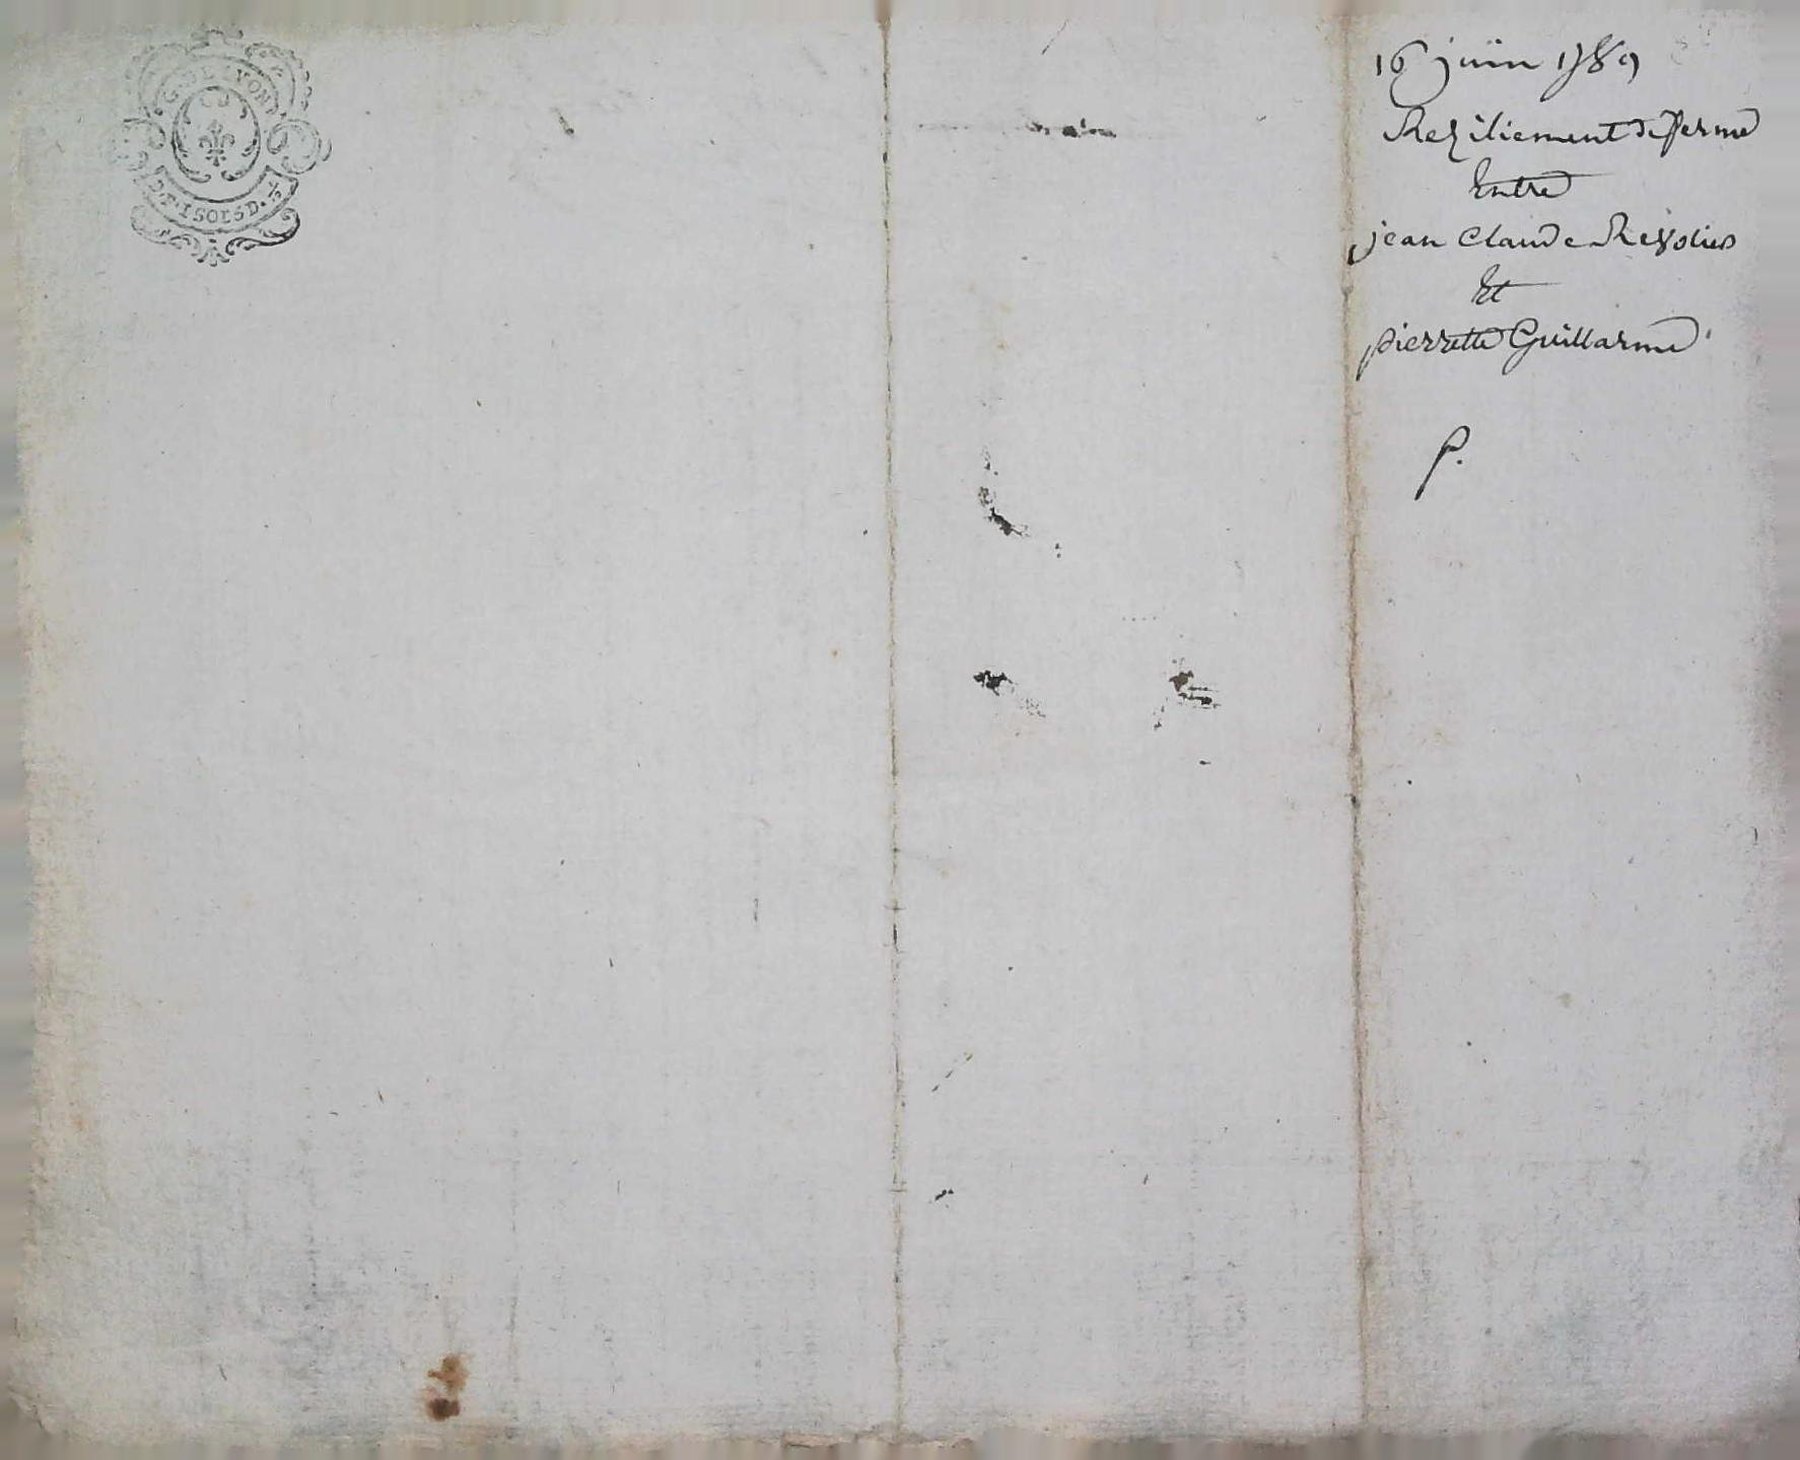 G. DE LYON
DE. 1 SOLS D. ½
16 juïn 1789
Reziliement de ferme
Entre
jean Claude Revolier
Et
pierrette Guillarme
P.